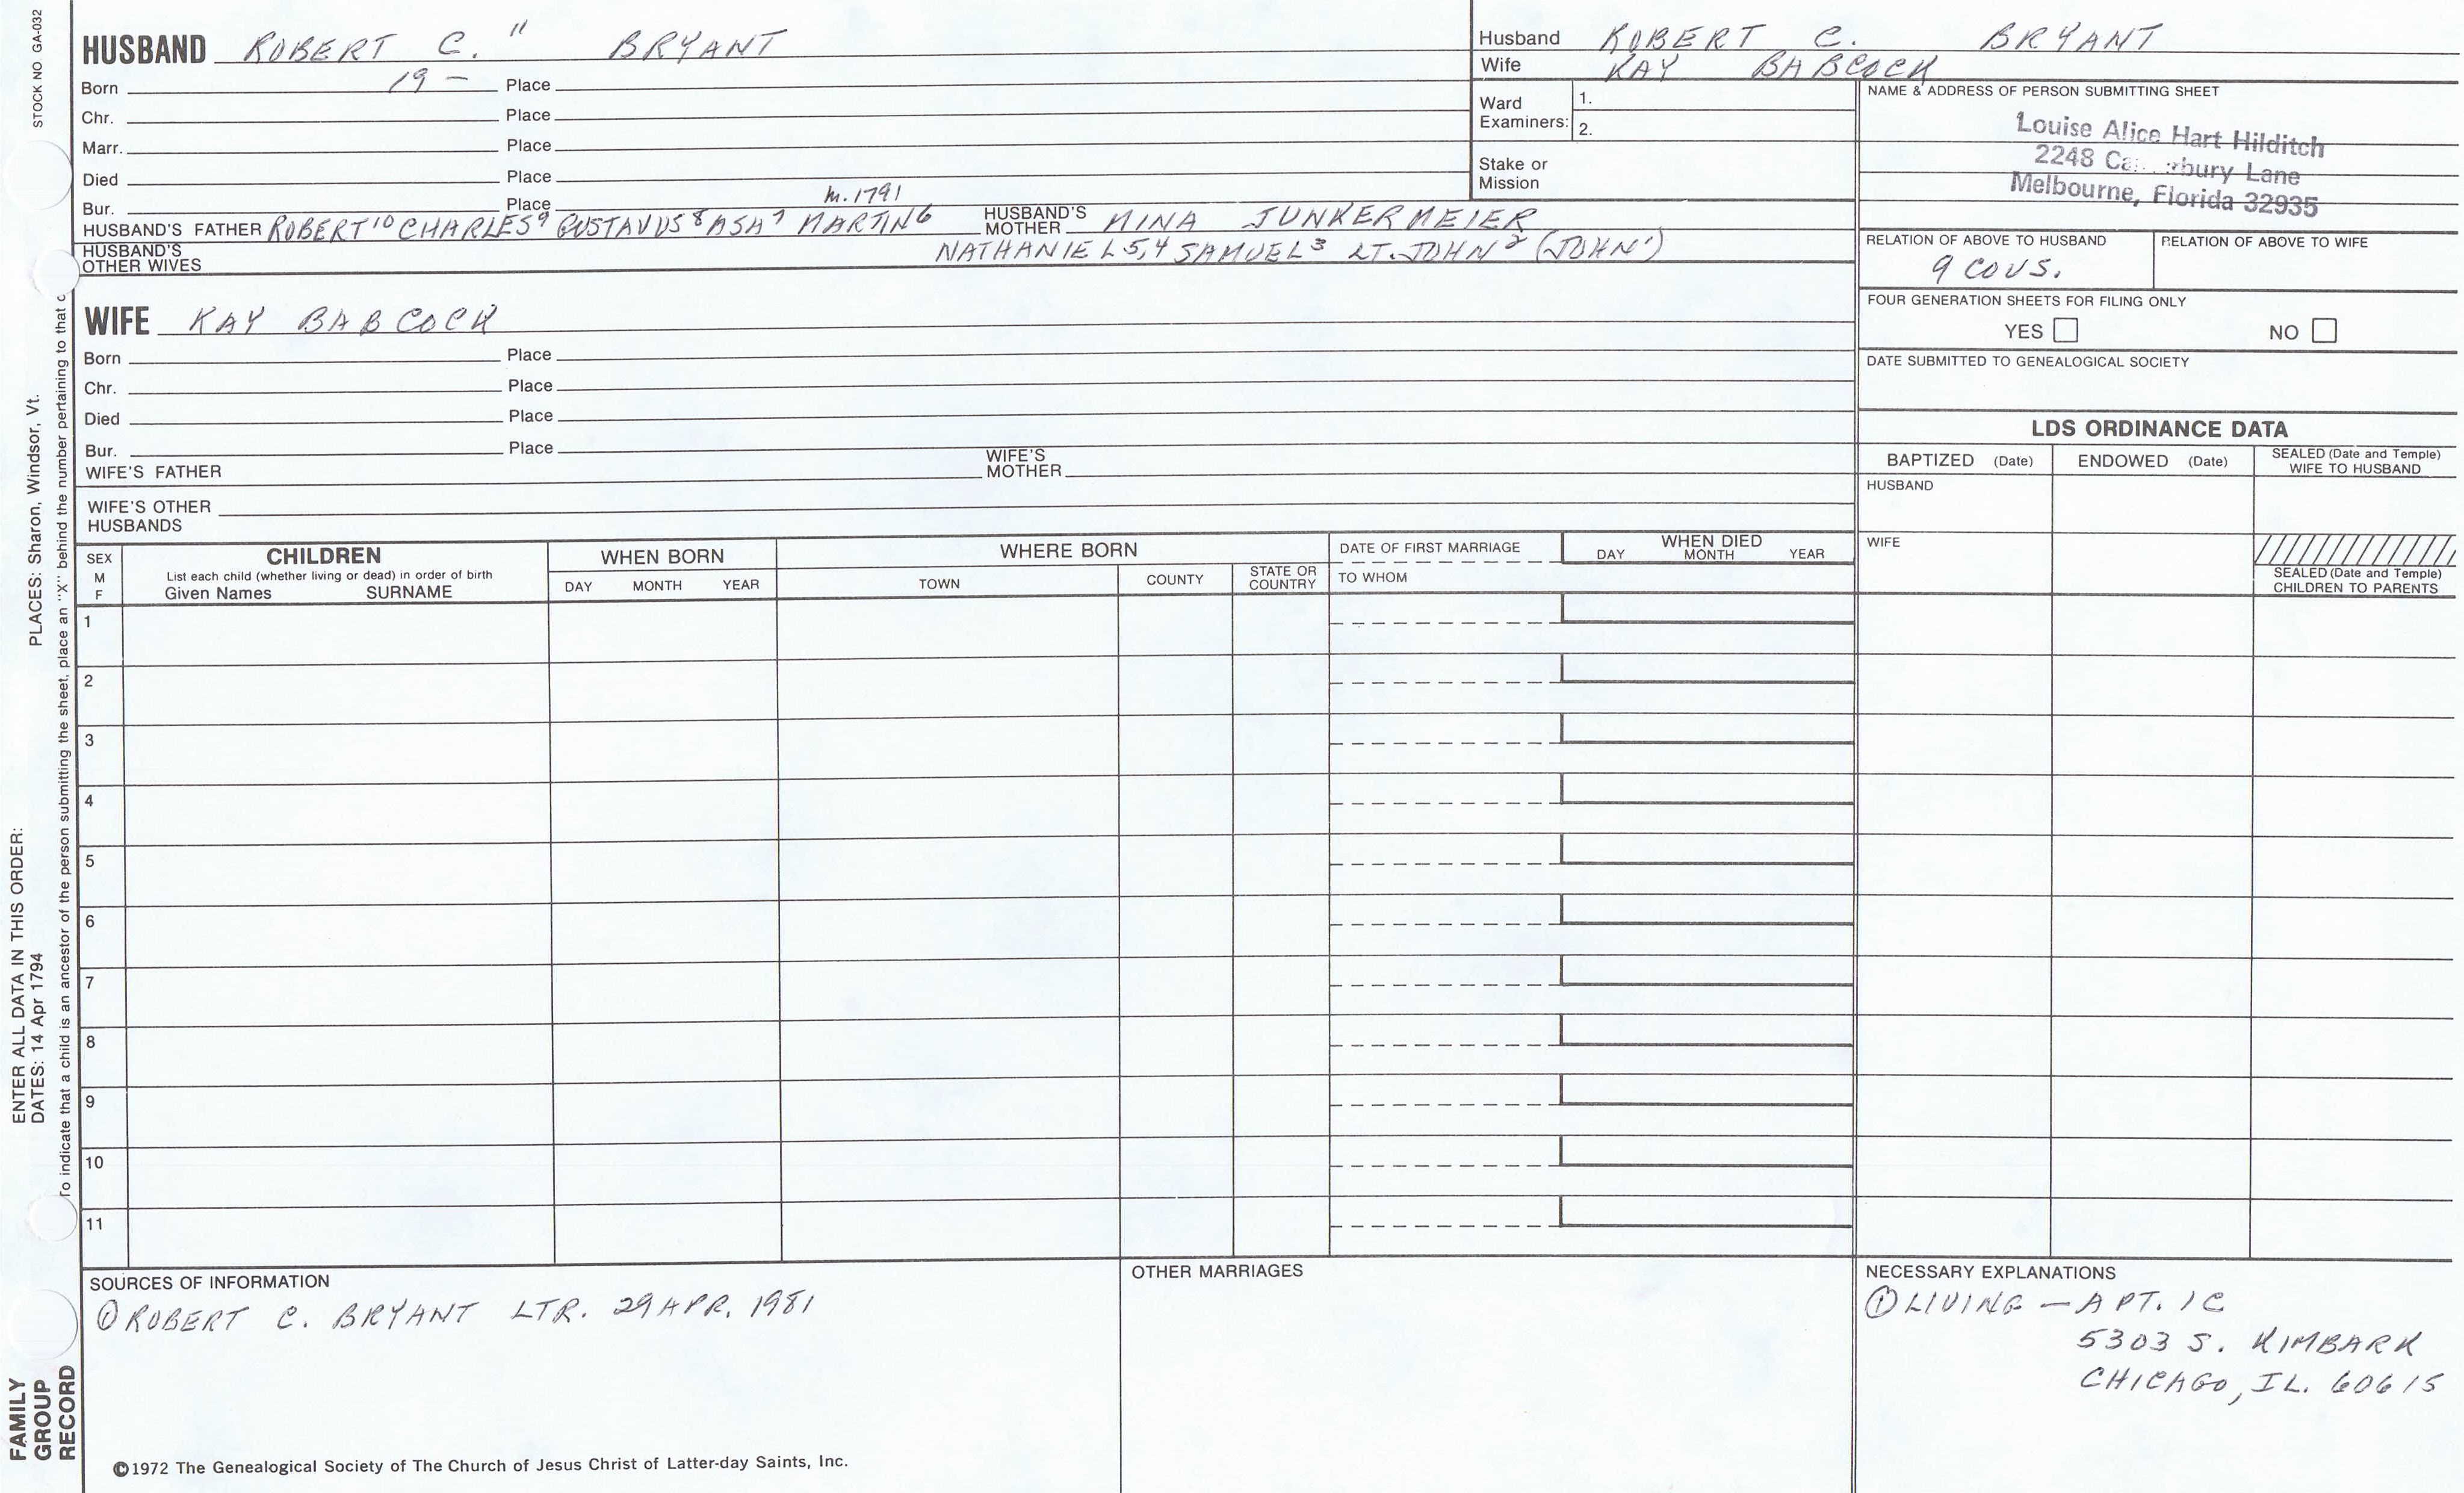 STOCK NO GA-032
HUSBAND ROBERT C. 11 BRYANT
Born 19 — Place
Chr. Place
Marr. Place
Died Place
Bur. Place
m. 1791
HUSBAND'S FATHER ROBERT 10 CHARLES 9 GUSTAVUS 8 ASA 7 MARTIN 6 HUSBAND'S MOTHER NINA JUNKERMEIER
HUSBAND'S OTHER WIVES NATHANIEL 5,4 SAMUEL 3 LT. JOHN 2 (JOHN 1)
WIFE KAY BABCOCK
Born Place
Chr. Place
Died Place
Bur. Place
WIFE'S FATHER WIFE'S MOTHER
WIFE'S OTHER HUSBANDS
Husband ROBERT C. BRYANT
Wife KAY BABCOCK
Ward Examiners: 1.
2.
Stake or Mission
NAME & ADDRESS OF PERSON SUBMITTING SHEET
Louise Alice Hart Hilditch
2248 Lane
Melbourne, Florida 32935
RELATION OF ABOVE TO HUSBAND RELATION OF ABOVE TO WIFE
9 COUS.
FOUR GENERATION SHEETS FOR FILING ONLY
YES NO
DATE SUBMITTED TO GENEALOGICAL SOCIETY
LDS ORDINANCE DATA
BAPTIZED (Date) ENDOWED (Date) SEALED (Date and Temple) WIFE TO HUSBAND
HUSBAND
WIFE
SEALED (Date and Temple) CHILDREN TO PARENTS
SEX M F
CHILDREN
List each child (whether living or dead) in order of birth
Given Names SURNAME
WHEN BORN
DAY MONTH YEAR
WHERE BORN
TOWN COUNTY STATE OR COUNTRY
DATE OF FIRST MARRIAGE
TO WHOM
WHEN DIED
DAY MONTH YEAR
1
2
3
4
5
6
7
8
9
10
11
SOURCES OF INFORMATION
① ROBERT C. BRYANT LTR. 29 APR. 1981
OTHER MARRIAGES
NECESSARY EXPLANATIONS
① LIVING — APT. 1C
5303 S. KIMBARK
CHICAGO, IL. 60615
©1972 The Genealogical Society of The Church of Jesus Christ of Latter-day Saints, Inc.
FAMILY
GROUP
RECORD
ENTER ALL DATA IN THIS ORDER:
DATES: 14 Apr 1794 PLACES: Sharon, Windsor, Vt.
To indicate that a child is an ancestor of the person submitting the sheet, place an "X" behind the number pertaining to that